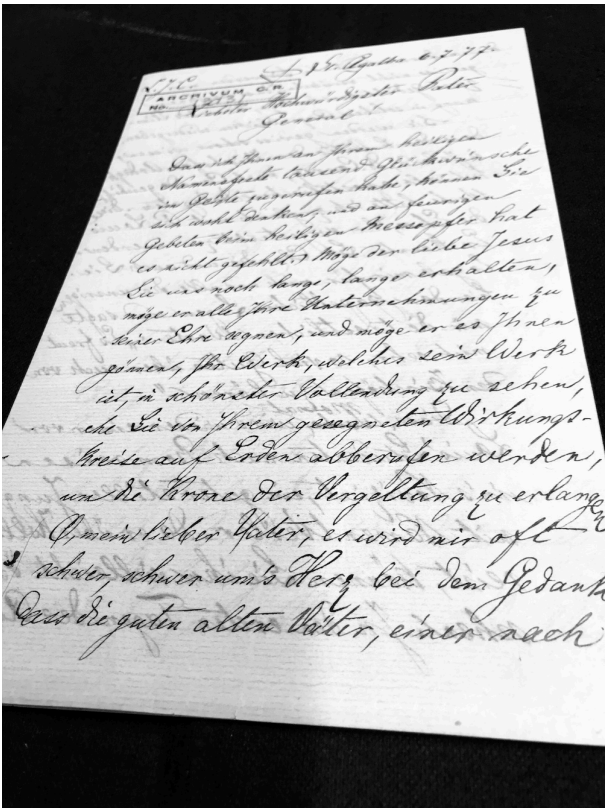 L. J. C. + St. Agatha 6-7-77
ARCHIVUM C.R.
No.
Liebster Hochwürdigster Pater
General!
Dass ich Ihnen an Ihrem heiligen
Namensfeste tausend Glückwünsche
im Geiste zugerufen habe, können Sie
sich wohl denken, und an feurigen
Gebeten beim heiligen Messopfer hat
es nicht gefehlt. Möge der liebe Jesus
Sie uns noch lange, lange erhalten,
möge er alle Ihre Unternehmungen zu
seiner Ehre segnen, und möge er es Ihnen
gönnen, Ihr Werk, welches sein Werk
ist, in schönster Vollendung zu sehen,
ehe Sie von Ihrem gesegneten Wirkungs-
kreise auf Erden abberufen werden,
um die Krone der Vergeltung zu erlangen
O, mein lieber Vater, es wird mir oft
schwer, schwer um's Herz bei dem Gedank
dass die guten alten Väter, einer nach